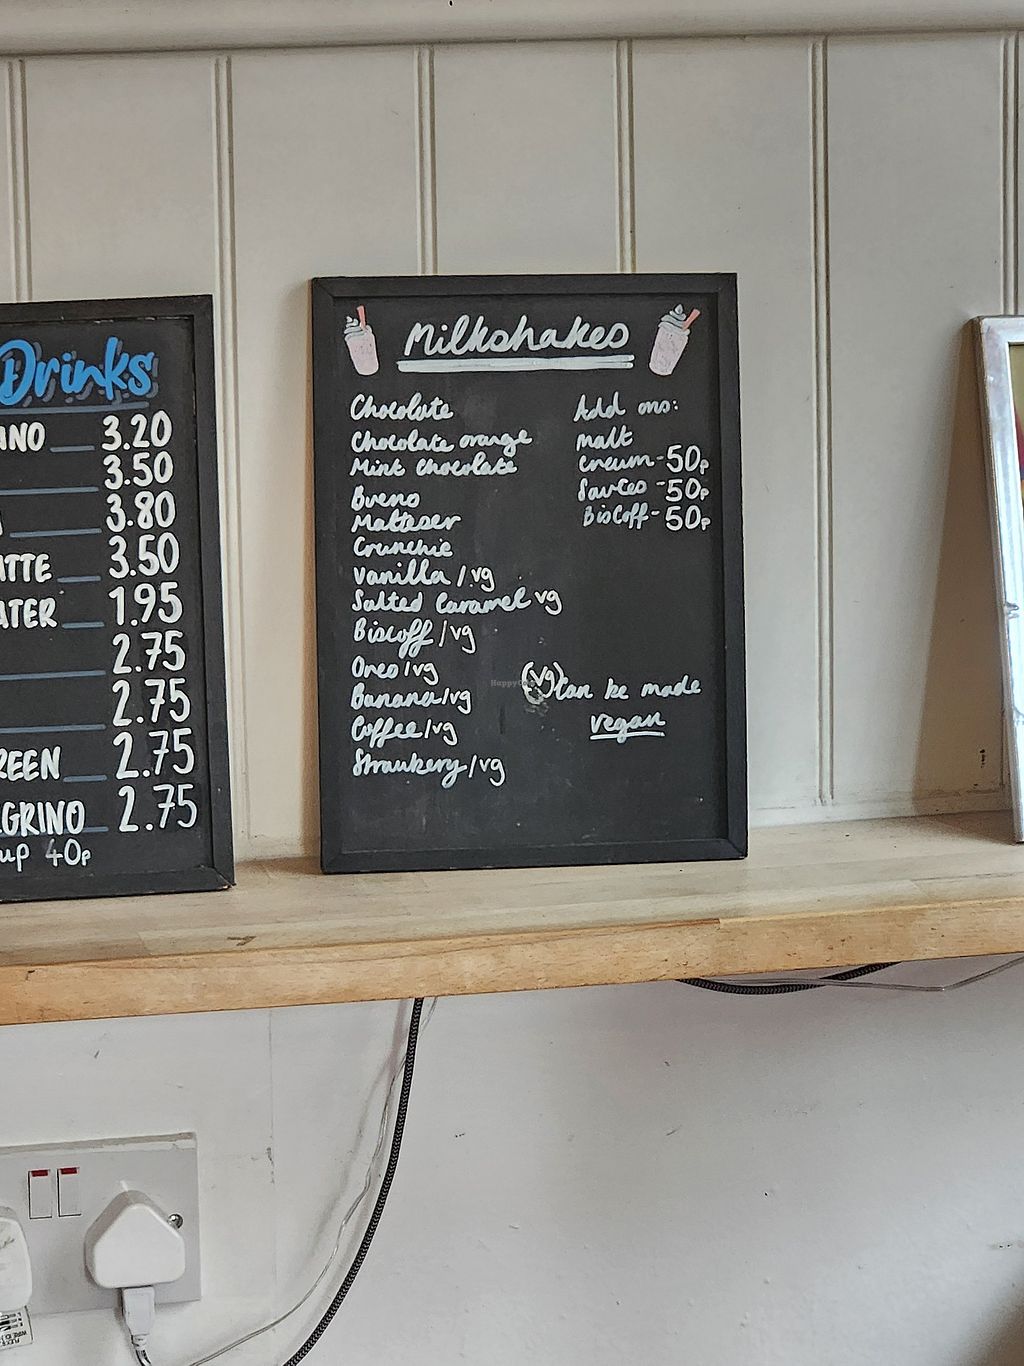 Drinks
ANO 3.20
3.50
3.80
ATTE 3.50
ATER 1.95
2.75
2.75
REEN 2.75
GRINO 2.75
up 40p
Milkshakes
Chocolate
Chocolate orange
Mint chocolate
Bueno
Malteser
Crunchie
Vanilla / vg
Salted Caramel vg
Biscoff / vg
Oreo / vg
Banana / vg
Coffee / vg
Strawbery / vg
Add ons:
Malt
Cream - 50p
Sauces - 50p
Biscoff - 50p
(vg) Can be made
vegan